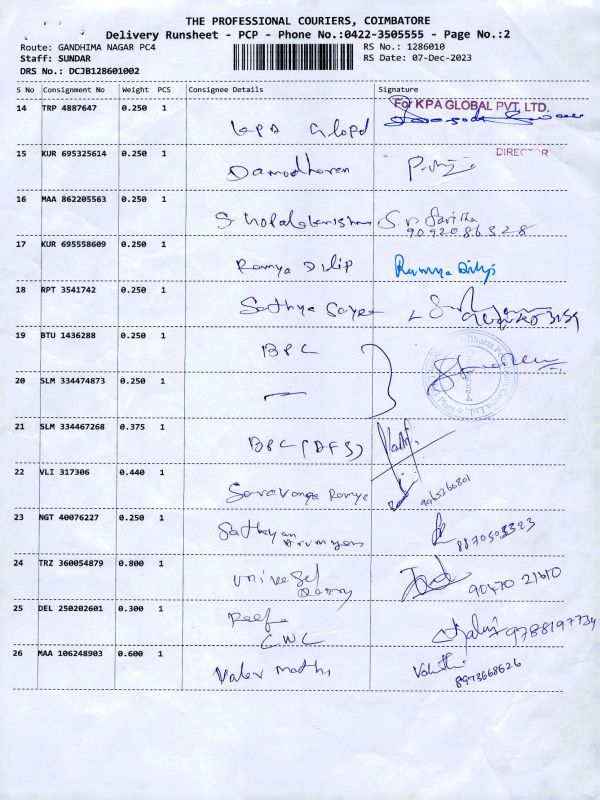 THE PROFESSIONAL COURIERS, COIMBATORE
Delivery Runsheet - PCP - Phone No.:0422-3505555 - Page No.:2
Route: GANDHIMA NAGAR PC4
RS No.: 1286010
Staff: SUNDAR
RS Date: 07-Dec-2023
DRS No.: DCJB128601002
S No Consignment No Weight PCS Consignee Details Signature
14 TRP 4887647 0.250 1
For KPA GLOBAL PVT. LTD.
KPA
15 KUR 695325614 0.250 1
DIRECTOR
Damodharen
16 MAA 862205563 0.250 1
S. Gopalakrishnan S. P. Saritha
9092086328
17 KUR 695558609 0.250 1
Ramya Dilip Ramya Dilip
18 RPT 3541742 0.250 1
Sathya
19 BTU 1436288 0.250 1
BPC
20 SLM 334474873 0.250 1
21 SLM 334467268 0.375 1
BPC (DFS)
22 VLI 317306 0.440 1
Ramya 9965266801
23 NGT 40076227 0.250 1
Sathyan
8870503323
24 TRZ 360054879 0.800 1
90470
25 DEL 250202601 0.300 1
CWC 9788197734
26 MAA 106248903 0.600 1
Valar mathi
8973668626